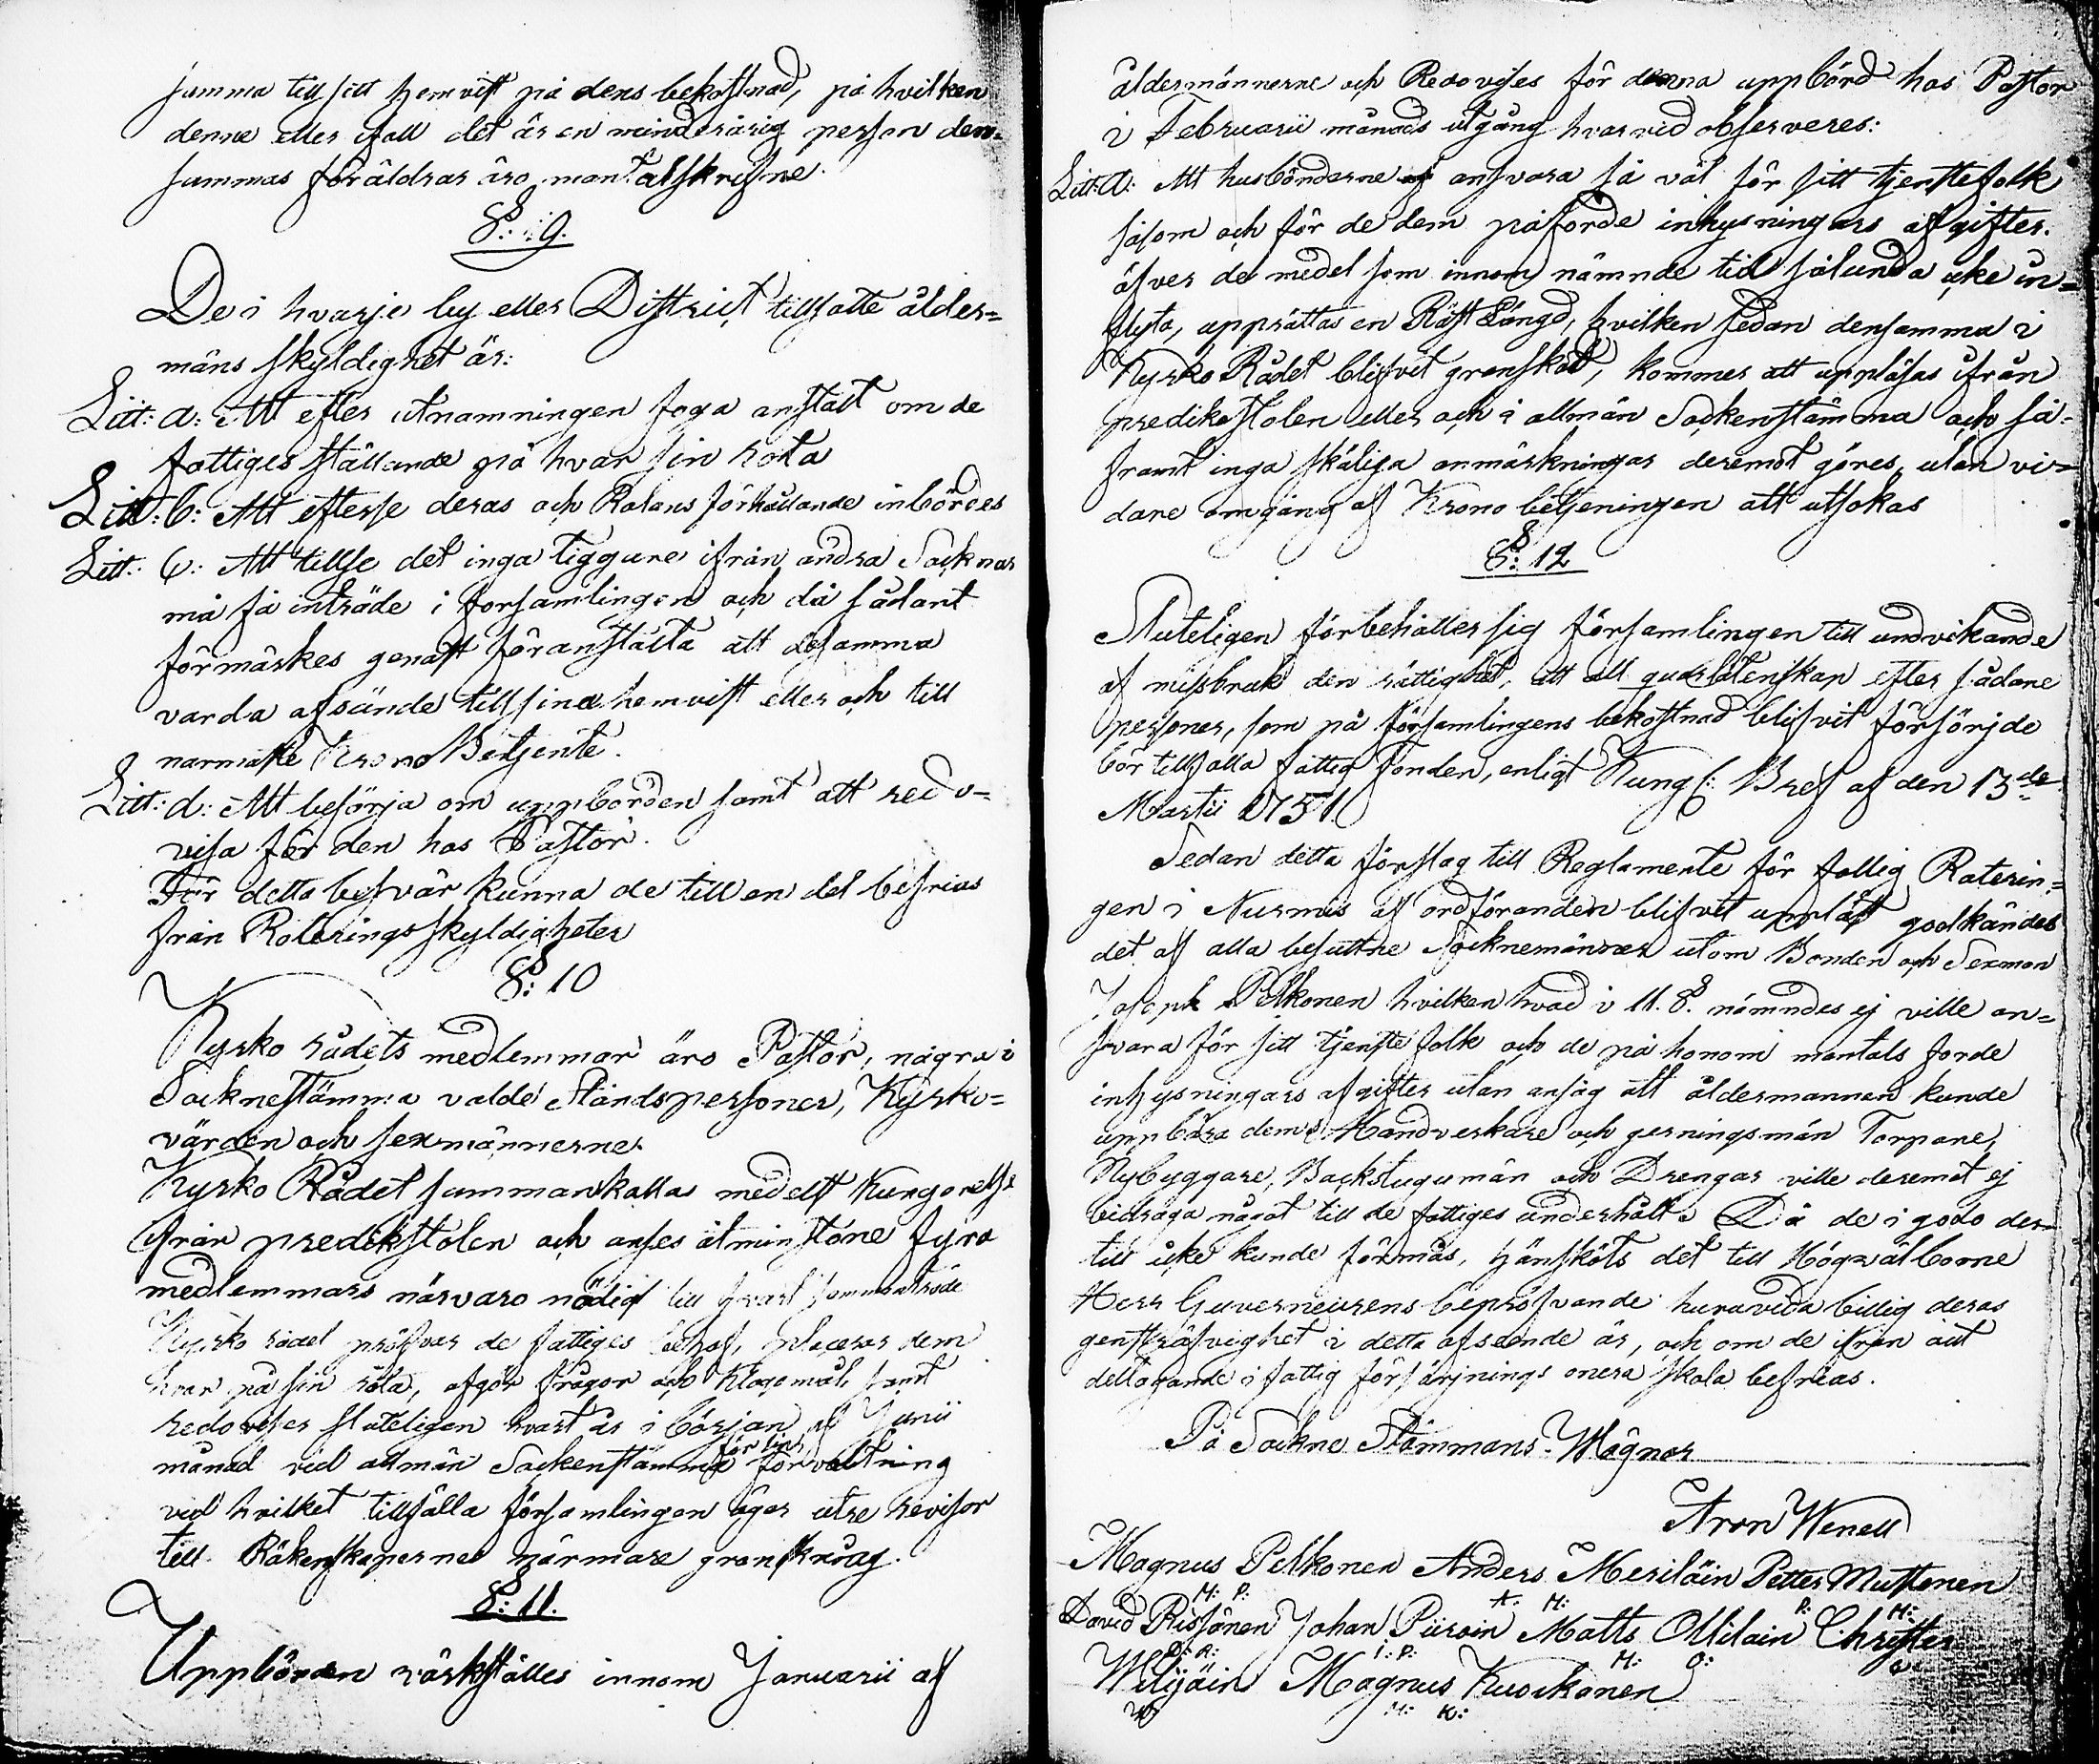 samma till sitt hemvist på dens bekostnad, på hvilken
denne eller ifall det är en minderårig person den-
sammas föräldrar äro mantalskrifne.
§: 9.
De i hvarje by eller District tillsatte ålder=
mäns skyldighet är:
Litt: a: Att efter utnamningen foga anstalt om de
fattiges ställande på hvar sin rota
Litt: b: Att efterse deras och Rotans förhållande inbördes
Litt: C: Att tillse det inga tiggare ifrån andra Socknar
må få inträde i forsamlingen och då sådant
förmärkes genast föranstalta att desamma
varda afsände till sina hemvist eller och till
narmaste Krono Betjente.
Litt: d: Att besörja om uppbörden samt att redo=
visa för den hos Pastor.
För detta besvär kunna de till en del befrias
från Roterings skyldigheter
§: 10
Kyrko rådets medlemmar äro Pastor, några i
Socknestämma valde Ståndspersoner, Kyrko=
värden och sexmännerne.
Kyrko Rådet sammankallas medelst Kungorelse
från predikstolen och anses åtminstone fyra
medlemmars närvaro nödig till hvart sammanträde
Kyrko rådet pröfvar de fattiges behof, placerar dem
hvar på sin rota, afgör frågor och Klagomål, samt
redovises sluteligen hvart år i början af Junii
månad vid allmän Sockenstämma för sin förvaltning
vid hvilket tillfälle församlingen äger utse revisor
till Räkenskapernes närmare granskning.
§: 11.
Uppbörden värkställes innom Januarii af
åldermännerne och Redovises för denna uppbörd hos Pastor
i Februarii månads utgång hvarvid observeres:
Litt: a: Att husbönderne ansvara så väl för sitt tjenstefolk
såsom och för de dem påforde inhysningars afgifter.
öfver de medel som innom nämnde tid sålunda icke in=
flyta, upprättas en Rest Längd, hvilken sedan densamma i
Kyrko Rådet blifvit granskad, kommer att uppläsas ifrån
predikostolen eller och i allmän Sockenstämma och så=
framt inga skäliga anmärkningar deremot göres, utan vi=
dare omgång af Krono betjeningen att utsökas
§: 12
Sluteligen förbehåller sig församlingen till undvikande
af missbruk den rättighet, att all quarlåtenskap efter sådane
personer, som på församlingens bekostnad blifvit försörjde
bör tillfalla fattig fonden, enligt Kungl: Bref af den 13de
Martii 1751.
Sedan detta förslag till Reglamente för fattig Roterin=
gen i Nurmis af ordföranden blifvit uppläst godkändes
det af alla besuttne Socknemännen utom Bonden och Sexman
Joseph Pelkonen hvilken hvad i 11. §. nämndes ej ville an=
svara för sitt tjenstefolk och de på honom mantals forde
inhysningars afgifter utan ansåg att åldermannen kunde
uppbära dem. Handverkare och gerningsmän Torpare,
Nybyggare, Backstugumän och Drengar ville deremot ej
bidraga något till de fattiges underhåll. Då de i godo der=
till icke kunde förmås, hänsköts det till Högvälborne
Herr Guverneurens bepröfvande huruvida billig deras
genstrafvighet i detta afseende är, och om de ifrån allt
deltagande i fattig försörjnings onera skola befrias.
På Sockne Stämmans Wägnar
Aron Wenell
Magnus Pelkonen Anders Meriläin Petter Mustonen
M: P: A: M: P: M:
David Rissanen Johan Piirain Matts Ollilain Christer
D: R: I: P: M: O: C:
Wilijäin Magnus Kuockanen
W: M: K: